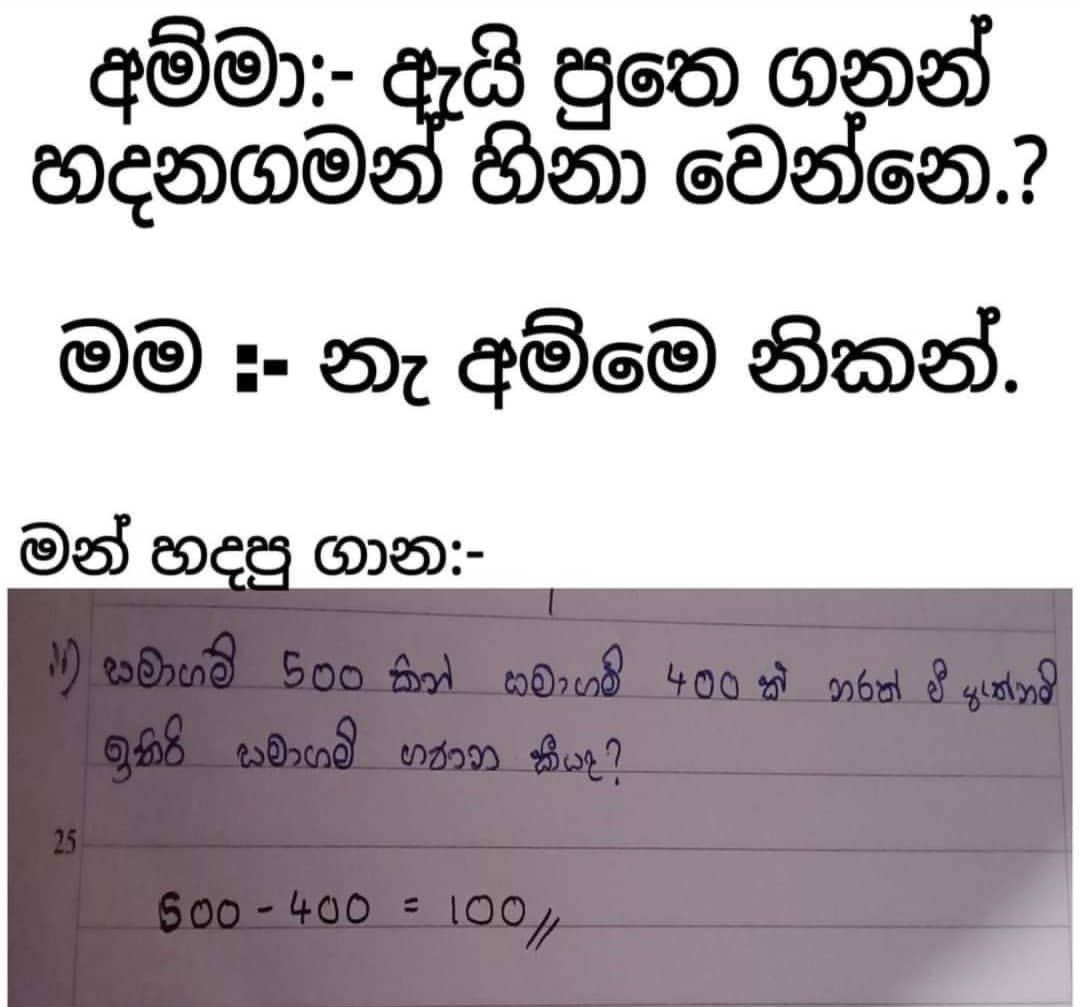 අම්මා:- ඇයි පුතෙ ගනන්
හදනගමන් හිනා වෙන්නෙ.?
මම :- නෑ අම්මෙ නිකන්.
මන් හදපු ගාන:-
සමාගම් 500 කින් සමාගම් 400 ක් නරක් වී ඇත්නම්
ඉතිරි සමාගම් ගණන කීයද?
25
500 - 400 = 100//